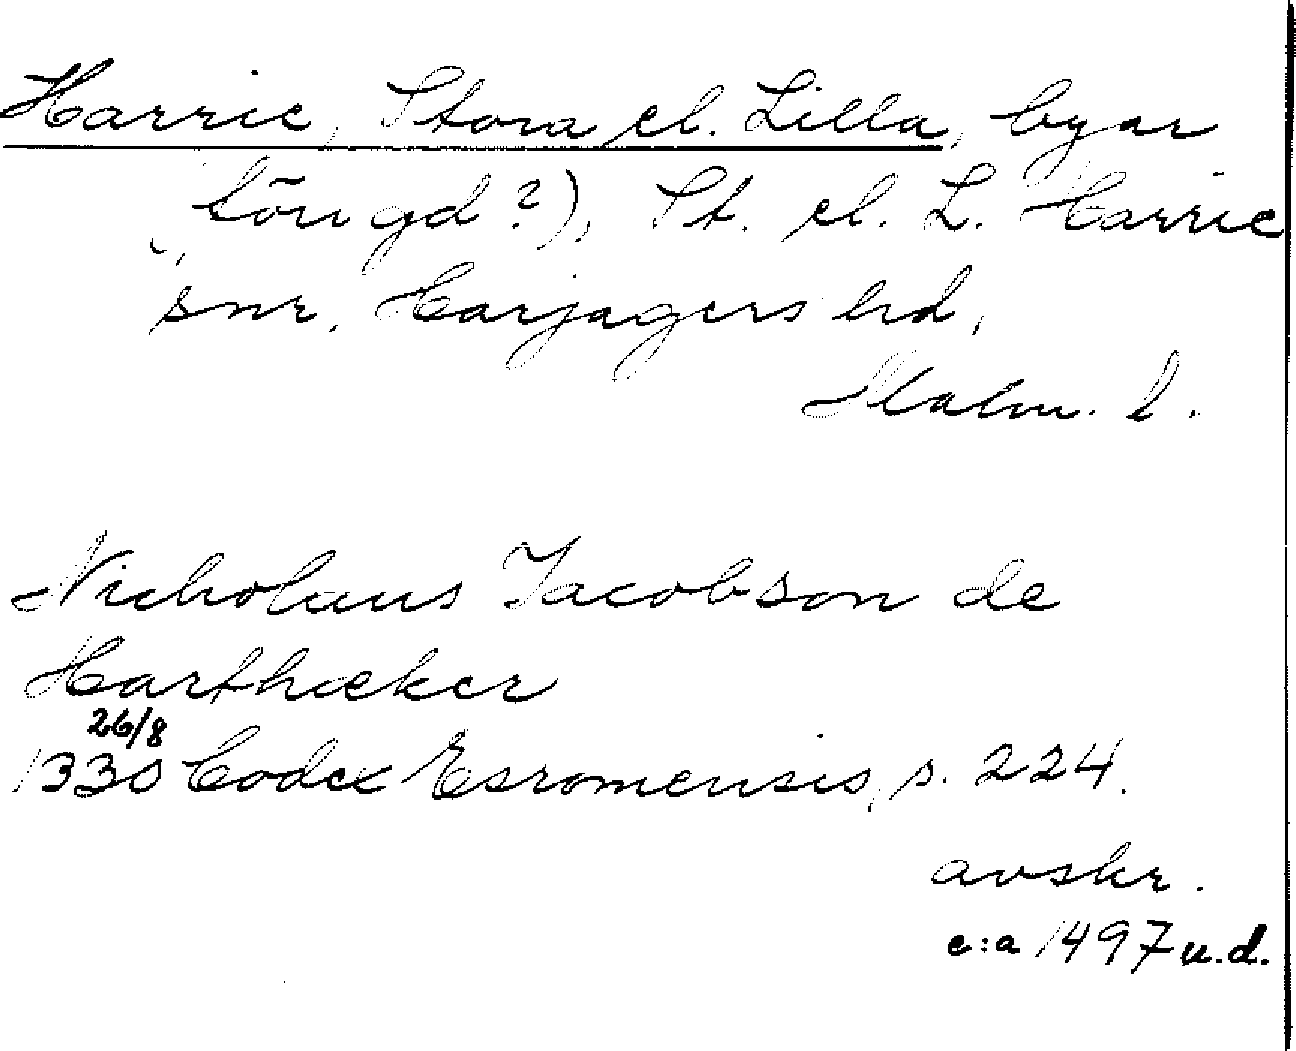 Harrie, Stora el. Lilla, byar
(en gd?), St. el. L. Harrie
snr, Harjagers hd,
Malm. l.
Nicholaus Jacobson de
Harthæker
26/8
1330 Codex Esromensis, s. 224.
avskr.
c:a 1497 u.d.